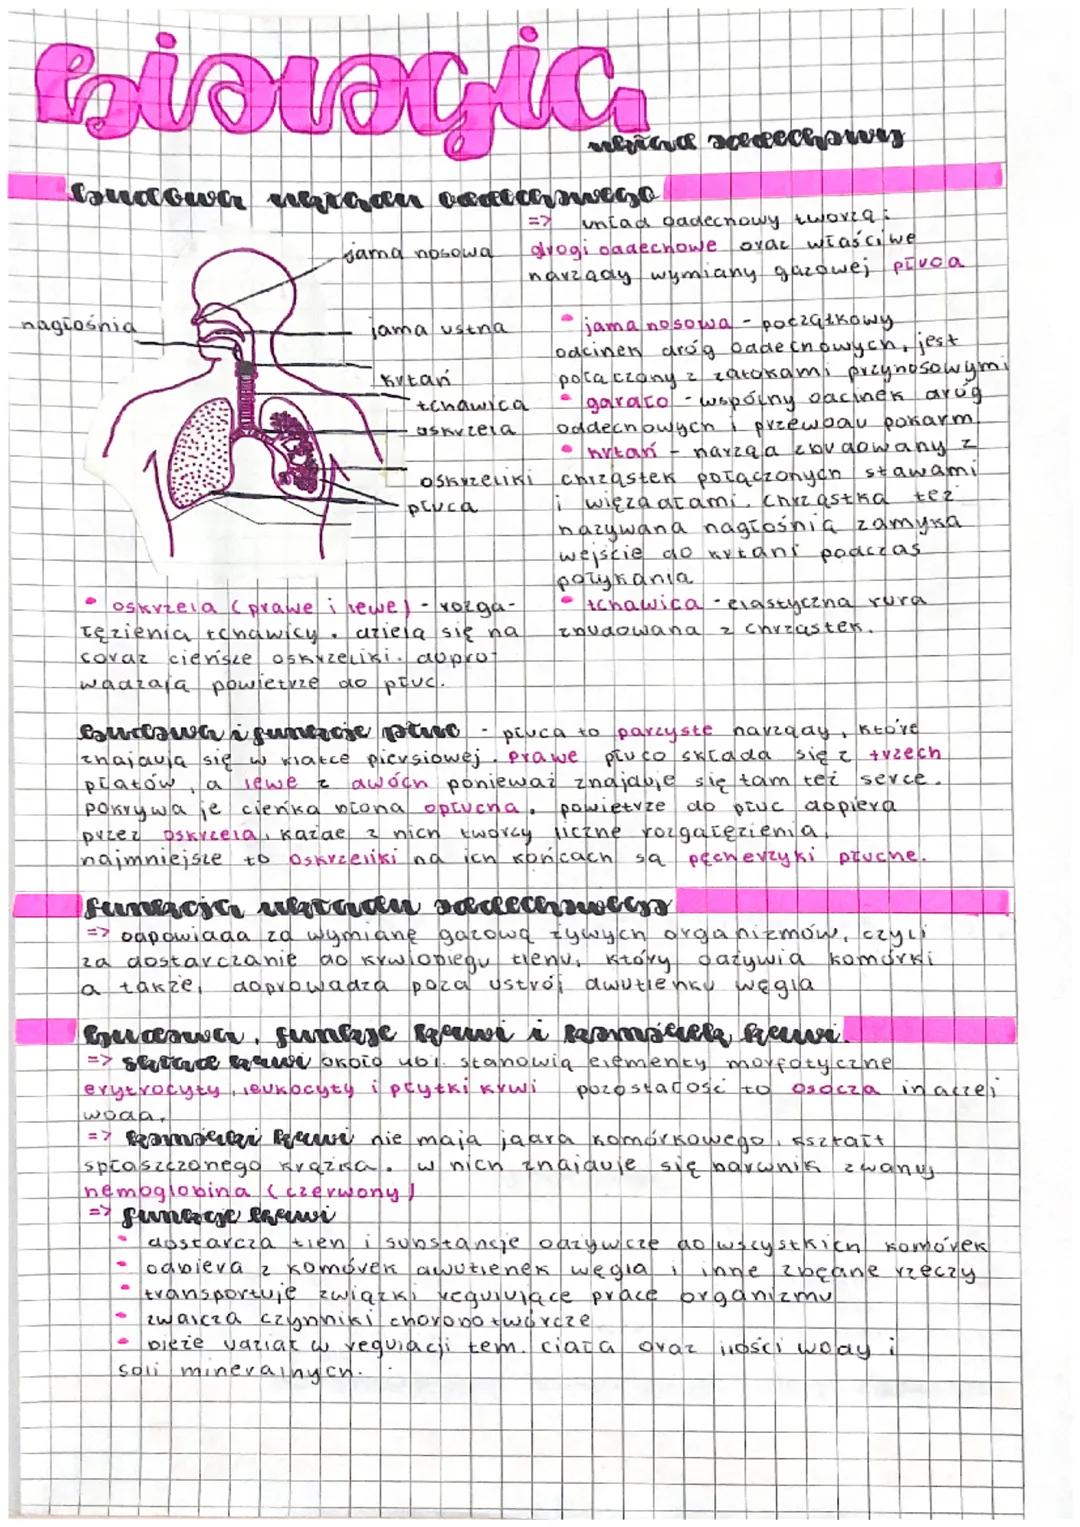 Biologia
układ oddechowy
Budowa układu oddechowego
=> układ oddechowy tworzą:
drogi oddechowe oraz właściwe
narządy wymiany gazowej płuca
jama nosowa
nagłośnia
jama ustna
krtań
tchawica
oskrzela
oskrzeliki
płuca
• jama nosowa - początkowy
odcinek dróg oddechowych, jest
połączony z zatokami przynosowymi
• gardło - wspólny odcinek dróg
oddechowych i przewodu pokarm.
• krtań - narząd zbudowany z
chrząstek połączonych stawami
i więzadłami. Chrząstka też
nazywana nagłośnią zamyka
wejście do krtani podczas
połykania
• tchawica - elastyczna rura
zbudowana z chrząstek.
• oskrzela (prawe i lewe) - rozga-
łęzienia tchawicy. dzielą się na
coraz cieńsze oskrzeliki. dopro-
wadzają powietrze do płuc.
Budowa i funkcje płuc - płuca to parzyste narządy, które
znajdują się w klatce piersiowej. Prawe płuco składa się z trzech
płatów, a lewe z dwóch ponieważ znajduje się tam też serce.
Pokrywa je cienka błona opłucna. powietrze do płuc dopiera
przez oskrzela, każde z nich tworzy liczne rozgałęzienia,
najmniejsze to oskrzeliki na ich końcach są pęcherzyki płucne.
funkcja układu oddechowego
=> odpowiada za wymianę gazową żywych organizmów, czyli
za dostarczanie do krwiobiegu tlenu, który odżywia komórki
a także, doprowadza poza ustrój dwutlenku węgla
Budowa, funkcje krwi i komórek krwi.
=> skład krwi około stanowią elementy morfotyczne
erytrocyty, leukocyty i płytki krwi pozostałość to osocza inaczej
woda.
=> komórki krwi nie mają jądra komórkowego, kształt
spłaszczonego krążka. w nich znajduje się barwnik zwany
hemoglobina (czerwony)
=> funkcje krwi
• dostarcza tlen i substancje odżywcze do wszystkich komórek
• odbiera z komórek dwutlenek węgla i inne zbędne rzeczy
• transportuje związki regulujące prace organizmu
• zwalcza czynniki chorobotwórcze
• bierze udział w regulacji tem. ciała oraz ilości wody i
soli mineralnych.